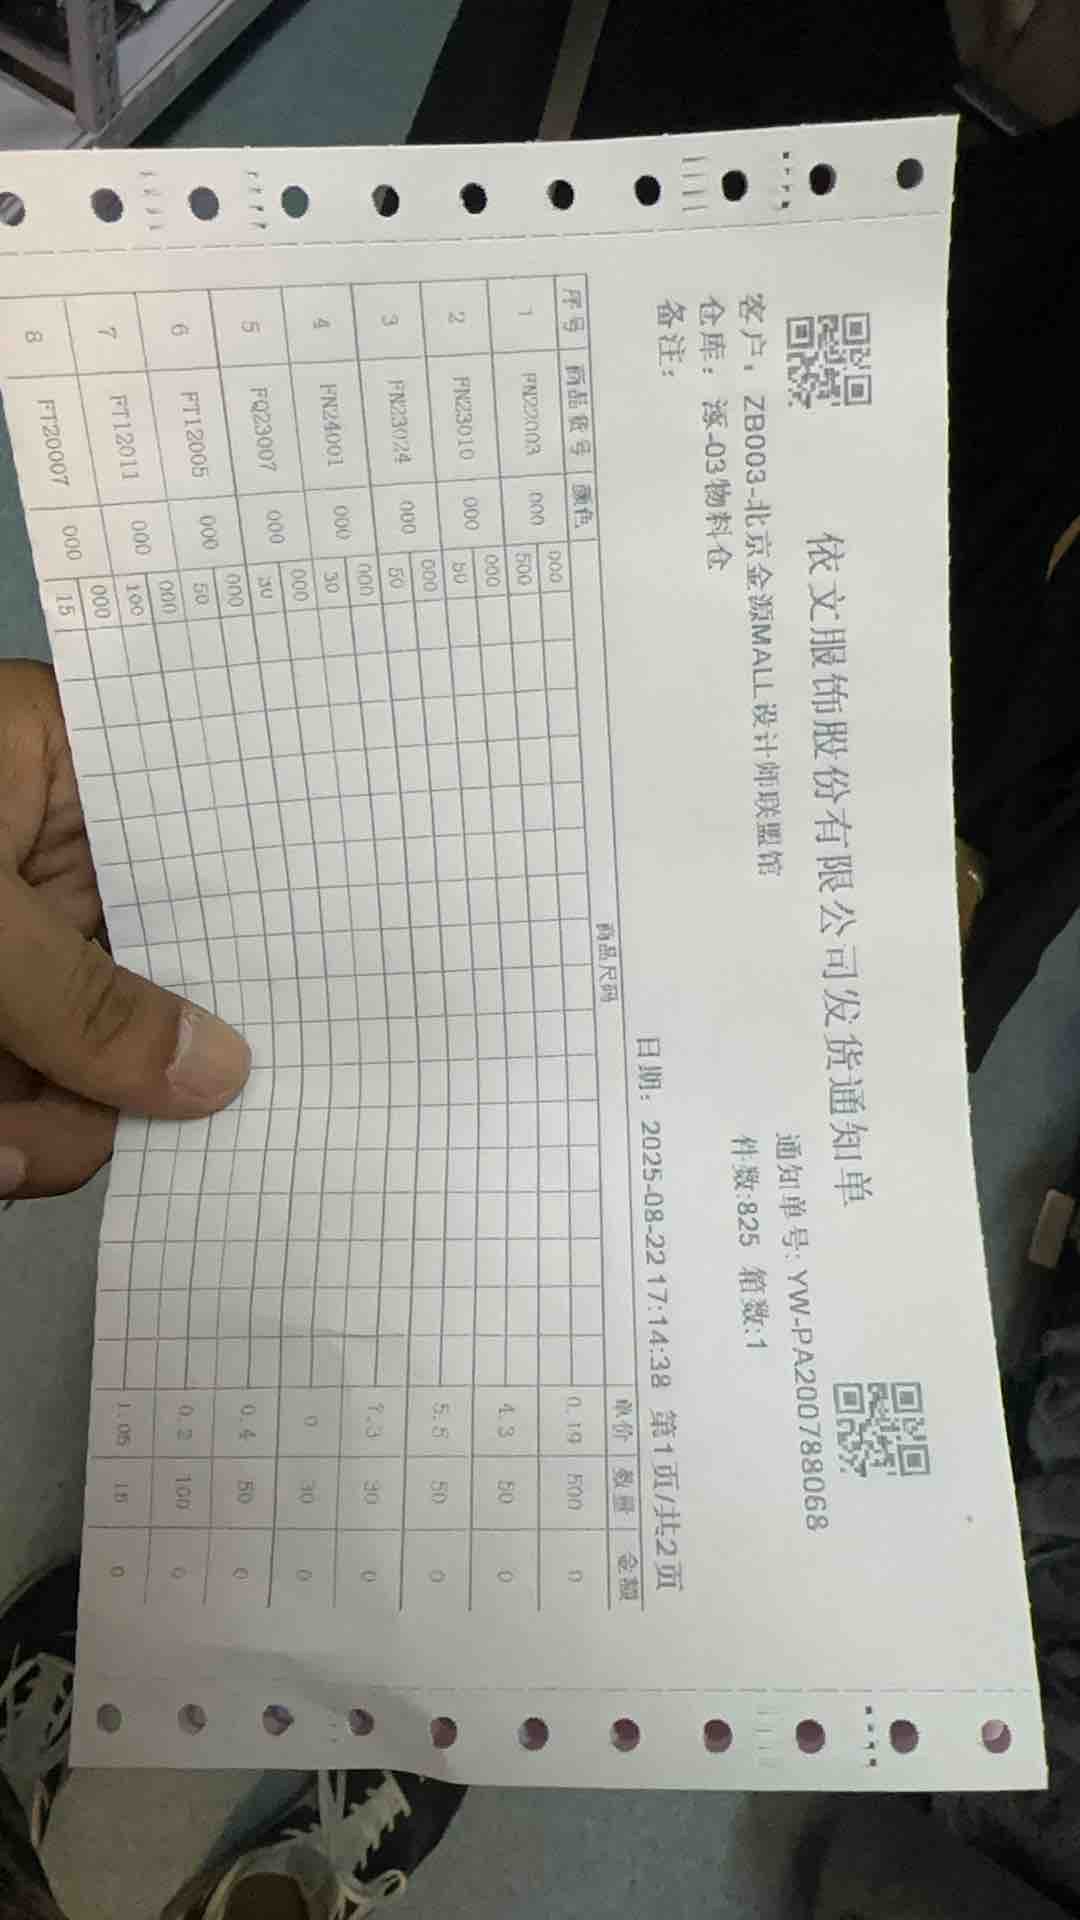 依文服饰股份有限公司发货通知单
通知单号: YW-PA200788068
客户: ZB003-北京金源MALL设计师联盟馆 件数:825 箱数:1
仓库: 涿-03物料仓
备注: 日期: 2025-08-22 17:14:38 第1页/共2页
序号 商品货号 颜色 商品尺码 单价 数量 金额
000
1 FN22003 000 500 0.19 500 0
000
2 FN23010 000 50 4.3 50 0
000
3 FN23024 000 50 5.5 50 0
000
4 FN24001 000 30 7.3 30 0
000
5 FQ23007 000 30 0 30 0
000
6 FT12005 000 50 0.4 50 0
000
7 FT12011 000 100 0.2 100 0
000
8 FT20007 000 15 1.05 15 0